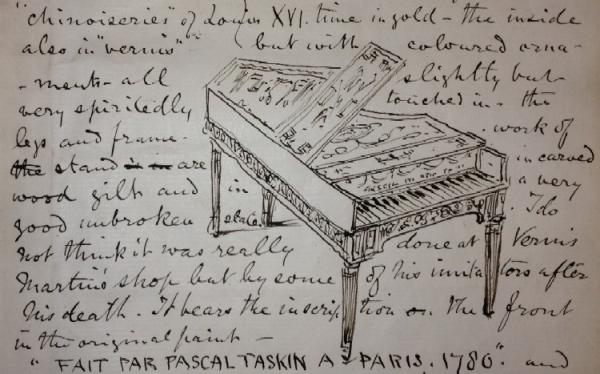 "chinoiseries" of Louis XVI. time in gold - the inside
also in "vernis" but with coloured orna-
- ments - all slightly but
very spiritedly touched in - the
legs and frame - work of
the stand in are in carved
wood gilt and in a very
good unbroken state. I do
not think it was really done at Vernis
Martin's shop but by some of his imitators after
his death. It bears the inscription on the front
in the original paint -
"FAIT PAR PASCAL TASKIN A PARIS. 1786" and